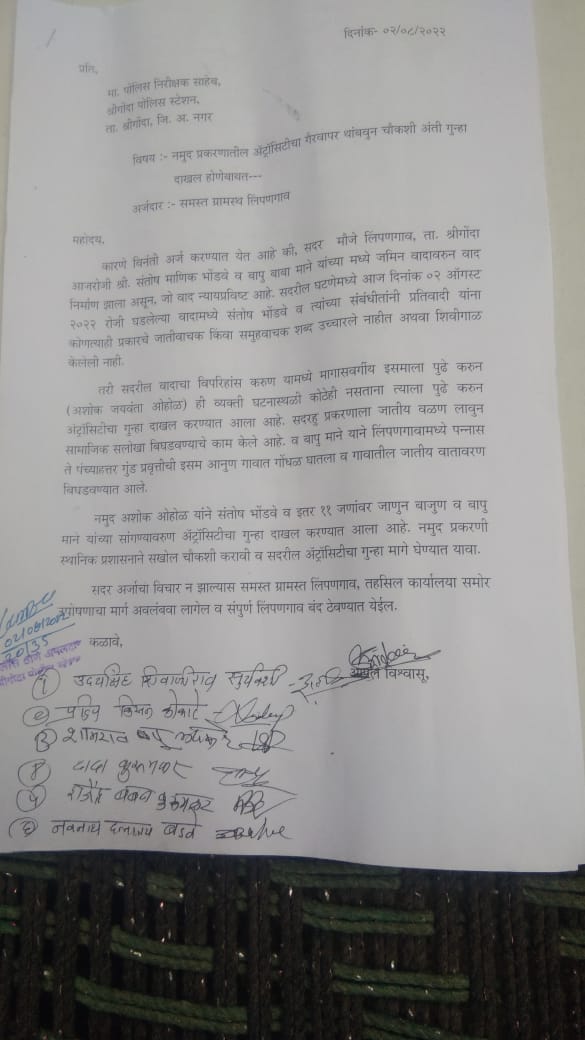 दिनांक- ०२/०८/२०२२
प्रति,
मा. पोलिस निरीक्षक साहेब,
श्रीगोंदा पोलिस स्टेशन,
ता. श्रीगोंदा, जि. अ. नगर
विषय :- नमुद प्रकरणातील अ‍ॅट्रॉसिटीचा गैरवापर थांबवुन चौकशी अंती गुन्हा
दाखल होणेबाबत---
अर्जदार :- समस्त ग्रामस्थ लिंपणगाव
महोदय,
कारणे विनंती अर्ज करण्यात येत आहे की, सदर मौजे लिंपणगाव, ता. श्रीगोंदा
आजरोजी श्री. संतोष माणिक भोंडवे व बापु बाबा माने यांच्या मध्ये जमिन वादावरुन वाद
निर्माण झाला असून, जो वाद न्यायप्रविष्ट आहे. सदरील घटणेमध्ये आज दिनांक ०२ ऑगस्ट
२०२२ रोजी घडलेल्या वादामध्ये संतोष भोंडवे व त्यांच्या संबंधीतांनी प्रतिवादी यांना
कोणत्याही प्रकारचे जातीवाचक किंवा समुहवाचक शब्द उच्चारले नाहीत अथवा शिवीगाळ
केलेली नाही.
तरी सदरील वादाचा विपरिहांस करुण यामध्ये मागासवर्गीय इसमाला पुढे करुन
(अशोक जयवंता ओहोळ) ही व्यक्ती घटनास्थळी कोठेही नसताना त्याला पुढे करुन
अ‍ॅट्रॉसिटीचा गुन्हा दाखल करण्यात आला आहे. सदरहु प्रकरणाला जातीय वळण लावुन
सामाजिक सलोखा बिघडवण्याचे काम केले आहे. व बापु माने याने लिंपणगावामध्ये पन्नास
ते पंच्याहत्तर गुंड प्रवृत्तीची इसम आनुण गावात गोंधळ घातला व गावातील जातीय वातावरण
बिघडवण्यात आले.
नमुद अशोक ओहोळ यांने संतोष भोंडवे व इतर ११ जणांवर जाणुन बाजुण व बापु
माने यांच्या सांगण्यावरुण अ‍ॅट्रॉसिटीचा गुन्हा दाखल करण्यात आला आहे. नमुद प्रकरणी
स्थानिक प्रशासनाने सखोल चौकशी करावी व सदरील अ‍ॅट्रॉसिटीचा गुन्हा मागे घेण्यात यावा.
सदर अर्जाचा विचार न झाल्यास समस्त ग्रामस्थ लिंपणगाव, तहसिल कार्यालया समोर
उपोषणाचा मार्ग अवलंबवा लागेल व संपुर्ण लिंपणगाव बंद ठेवण्यात येईल.
कळावे,
आपले विश्वासू,
१) उदयसिंह शिवाजीराव
२)
३) शामराव बापु
४) दादा
५) राजेंद्र
६) नवनाथ दत्तात्रय